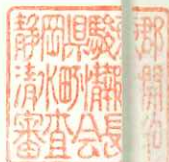 静岡県駿郡
清水町情報開
審査会長